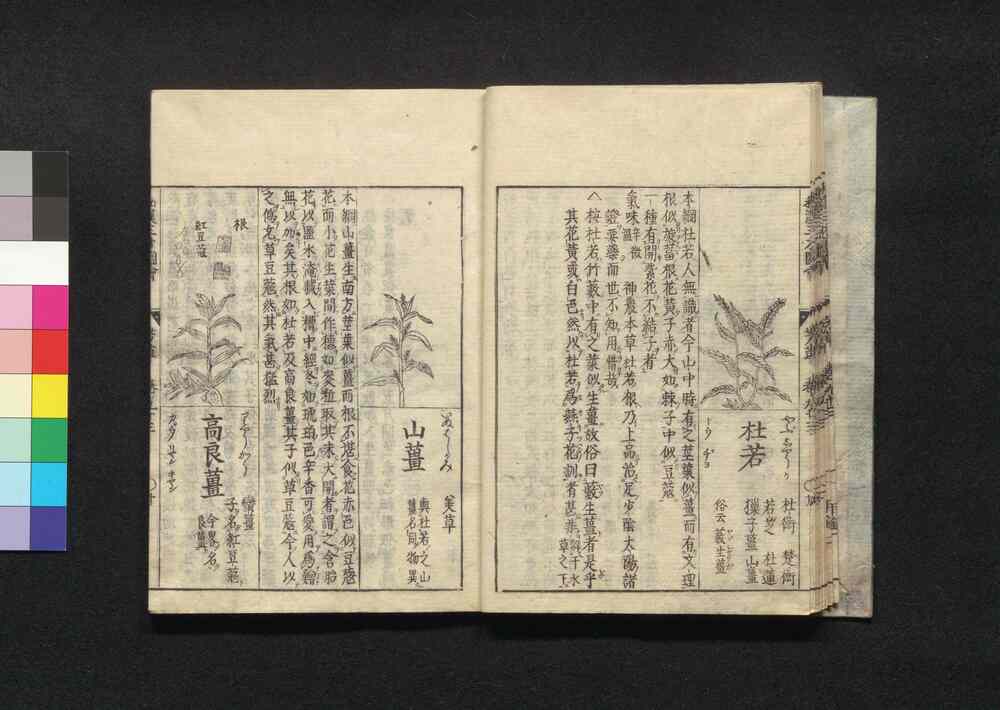 杜若
杜衡 楚衡
若芝 杜蓮
𤣑子薑 山薑
俗云 藪生薑
本綱杜若人無識者今山中時有之莖葉似薑而有文理
根似旋葍根花黃子赤大如棘子中似豆蔻
一種有開紫花不結子者
氣味辛微溫 神農本草杜若根乃上品治足少陰太陽諸
證要藥而世不知用惜哉
△按杜若竹藪中有之葉似生薑故俗曰藪生薑者是乎
其花黃或白色然以杜若爲燕子花訓者甚非
草之下
山薑
美草
與杜若之山
薑名同物異
本綱山薑生南方莖葉似薑而根不堪食花赤色似豆蔻
花而小花生葉間作穗如麥粒取其未大開者謂之含胎
花以鹽水淹藏入糟中經冬如琥珀色辛香可愛用爲鱠
無以加矣其根如杜若及高良薑其子似草豆蔻今人以
之僞充草豆蔻然其氣甚猛烈
高良薑
蠻薑
子名紅豆蔻
根
紅豆蔻